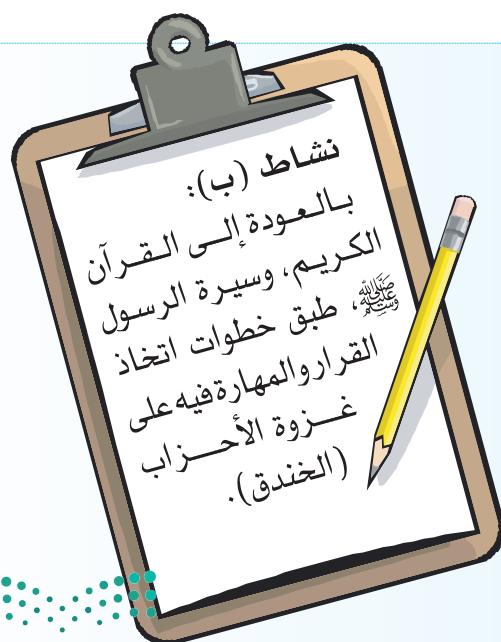 نشاط (ب):
بالعودة إلى القرآن
الكريم، وسيرة الرسول
ﷺ، طبق خطوات اتخاذ
القرار والمهارة فيه على
غزوة الأحزاب
(الخندق).